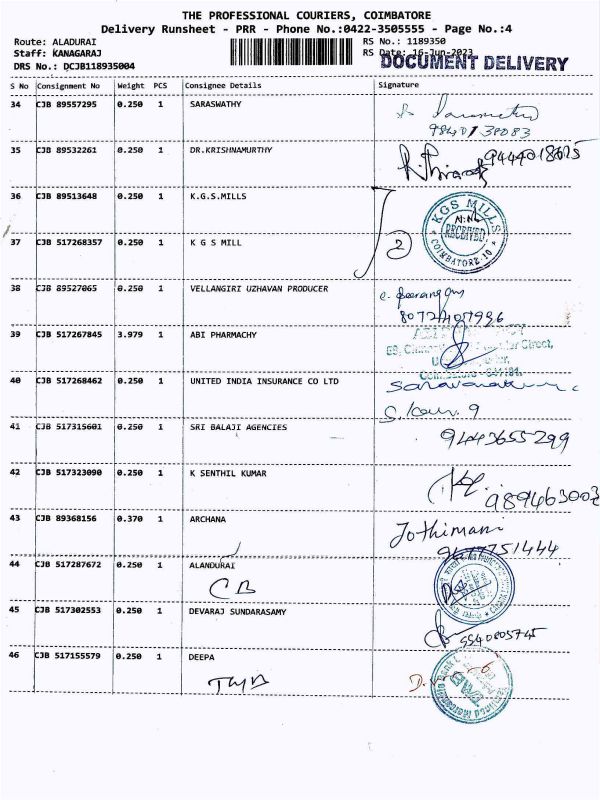 THE PROFESSIONAL COURIERS, COIMBATORE
Delivery Runsheet - PRR - Phone No.:0422-3505555 - Page No.:4
Route: ALADURAI RS No.: 1189350
Staff: KANAGARAJ RS Date: 16-Jun-2023
DRS No.: DCJB118935004 DOCUMENT DELIVERY
S No Consignment No Weight PCS Consignee Details Signature
34 CJB 89557295 0.250 1 SARASWATHY
9840138083
35 CJB 89532261 0.250 1 DR.KRISHNAMURTHY
36 CJB 89513648 0.250 1 K.G.S.MILLS
KGS MILLS RECEIVED COIMBATORE.10
37 CJB 517268357 0.250 1 K G S MILL
2
38 CJB 89527065 0.250 1 VELLANGIRI UZHAVAN PRODUCER
39 CJB 517267845 3.979 1 ABI PHARMACHY
Street,
40 CJB 517268462 0.250 1 UNITED INDIA INSURANCE CO LTD
41 CJB 517315601 0.250 1 SRI BALAJI AGENCIES
9443655299
42 CJB 517323090 0.250 1 K SENTHIL KUMAR
989463003
43 CJB 89368156 0.370 1 ARCHANA
Jothimani
44 CJB 517287672 0.250 1 ALANDURAI
CB
45 CJB 517302553 0.250 1 DEVARAJ SUNDARASAMY
46 CJB 517155579 0.250 1 DEEPA
TMB